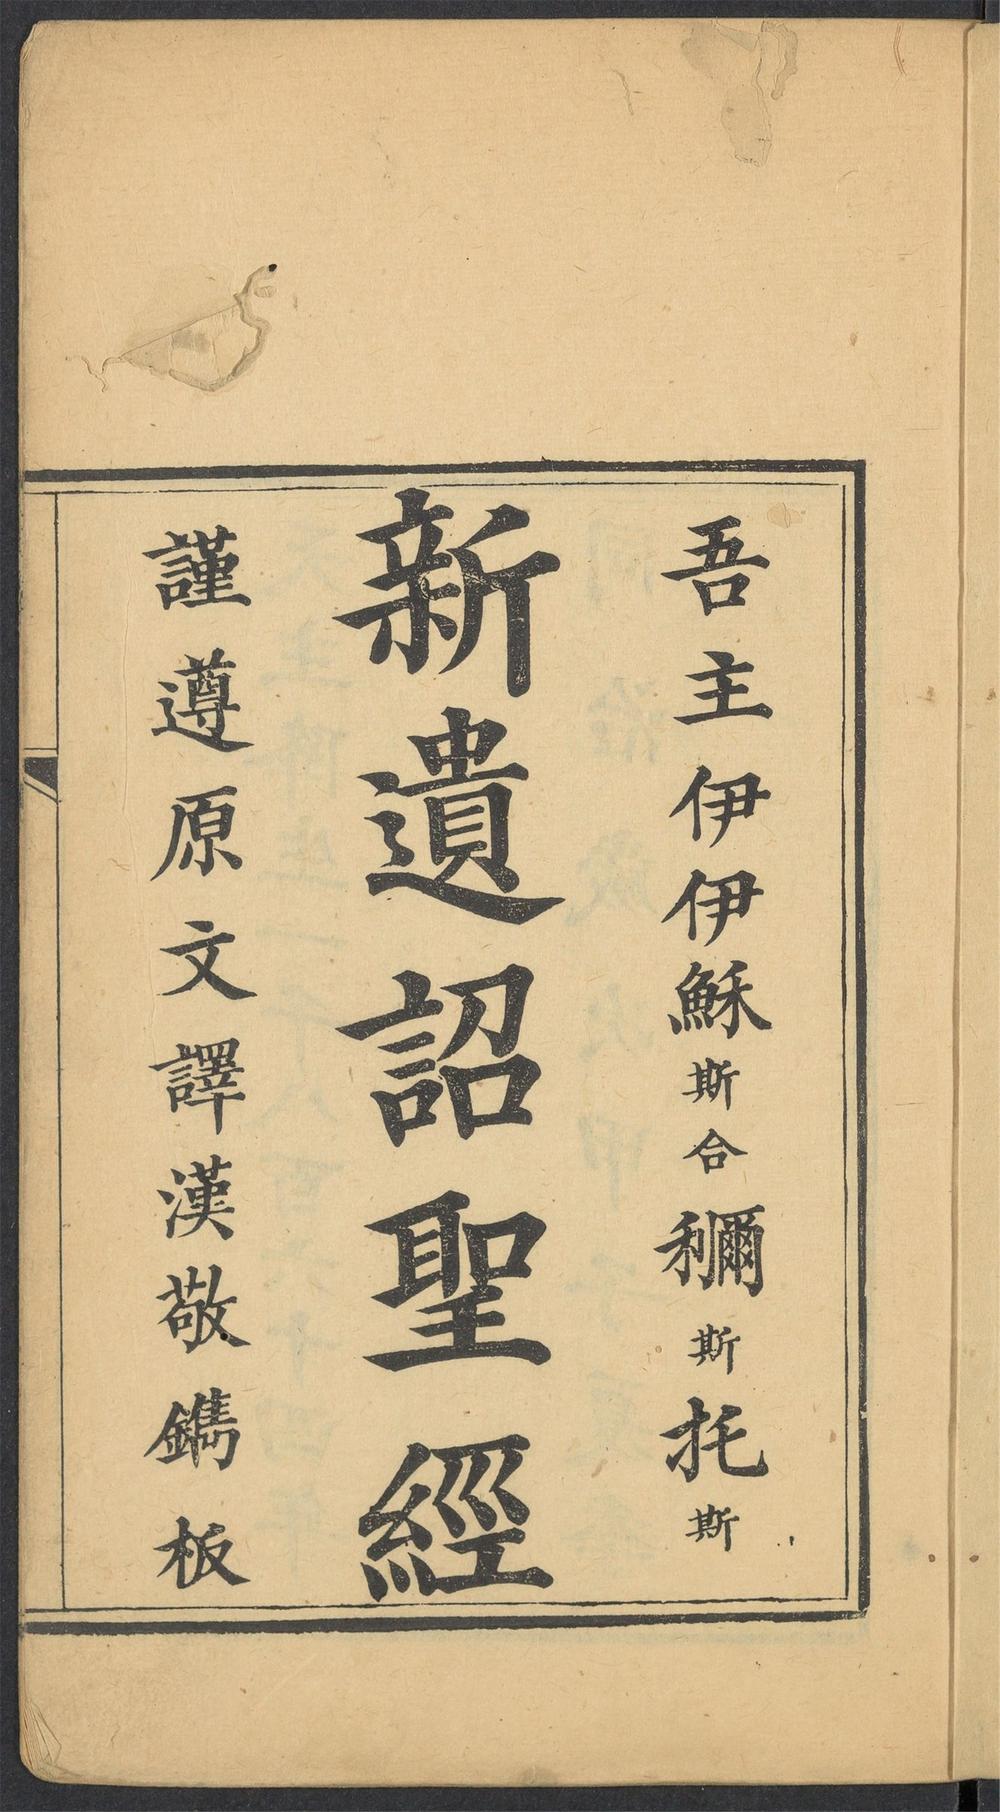 吾主伊伊穌斯合利爾斯托斯
新遺詔聖經
謹遵原文譯漢敬鐫板